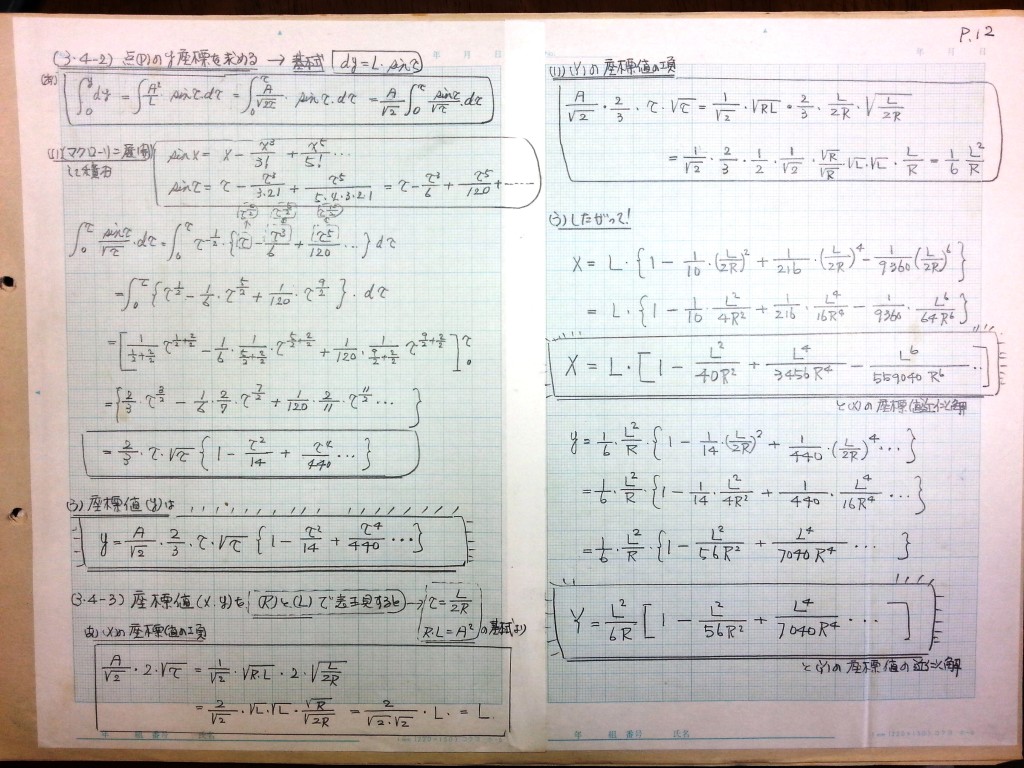 P.12
(3・4-2) 点(P)の y 座標を求める → 基本式 dy = L・sinτ
∫₀^y dy = ∫ A²/L・sinτ・dτ = ∫₀^τ A/√2τ・sinτ・dτ = A/√2 ∫₀^τ sinτ/√τ dτ
sin x = x − x³/3! + x⁵/5! …
sinτ = τ − τ³/3・2・1 + τ⁵/5・4・3・2・1 = τ − τ³/6 + τ⁵/120 + ……
∫₀^τ sinτ/√τ・dτ = ∫₀^τ τ^(-1/2)・{τ − τ³/6 + τ⁵/120 …} dτ
= ∫₀^τ {τ^(1/2) − 1/6・τ^(5/2) + 1/120・τ^(9/2)}・dτ
= [1/(1/2+2/2) τ^(1/2+2/2) − 1/6・1/(5/2+2/2)・τ^(5/2+2/2) + 1/120・1/(9/2+2/2)・τ^(9/2+2/2)]₀^τ
= {2/3・τ^(3/2) − 1/6・2/7・τ^(7/2) + 1/120・2/11・τ^(11/2) … }
= 2/3・τ・√τ {1 − τ²/14 + τ⁴/440 …}
(3) 座標値(y)は
y = A/√2・2/3・τ・√τ {1 − τ²/14 + τ⁴/440 …}
(3・4-3) 座標値(x,y)を (R)と(L)で表現すると → τ = L/2R
R・L = A² の基本式より
(X)の座標値の工項
A/√2・2・√τ = 1/√2・√R・L・2・√(L/2R)
= 2/√2・√L・√L・√R/√2R = 2/√2・√2・L・ = L
(11) (Y)の座標値の工項
A/√2・2/3・τ・√τ = 1/√2・√RL・2/3・L/2R・√(L/2R)
= 1/√2・2/3・1/2・1/√2・√R/√R・√L・√L・L/R = 1/6 L²/R
(う) したがって!
X = L・{1 − 1/10・(L/2R)² + 1/216・(L/2R)⁴ − 1/9360 (L/2R)⁶}
= L・{1 − 1/10・L²/4R² + 1/216・L⁴/16R⁴ − 1/9360・L⁶/64R⁶}
X = L・[1 − L²/40R² + L⁴/3456R⁴ − L⁶/559040R⁶ …]
と(x)の座標値
y = 1/6・L²/R・{1 − 1/14・(L/2R)² + 1/440・(L/2R)⁴ …}
= 1/6・L²/R・{1 − 1/14・L²/4R² + 1/440・L⁴/16R⁴ …}
= 1/6・L²/R・{1 − L²/56R² + L⁴/7040R⁴ … }
Y = L²/6R [1 − L²/56R² + L⁴/7040R⁴ … ]
と(y)の座標値の
年 組 番号 氏名
年 組 番号 氏名